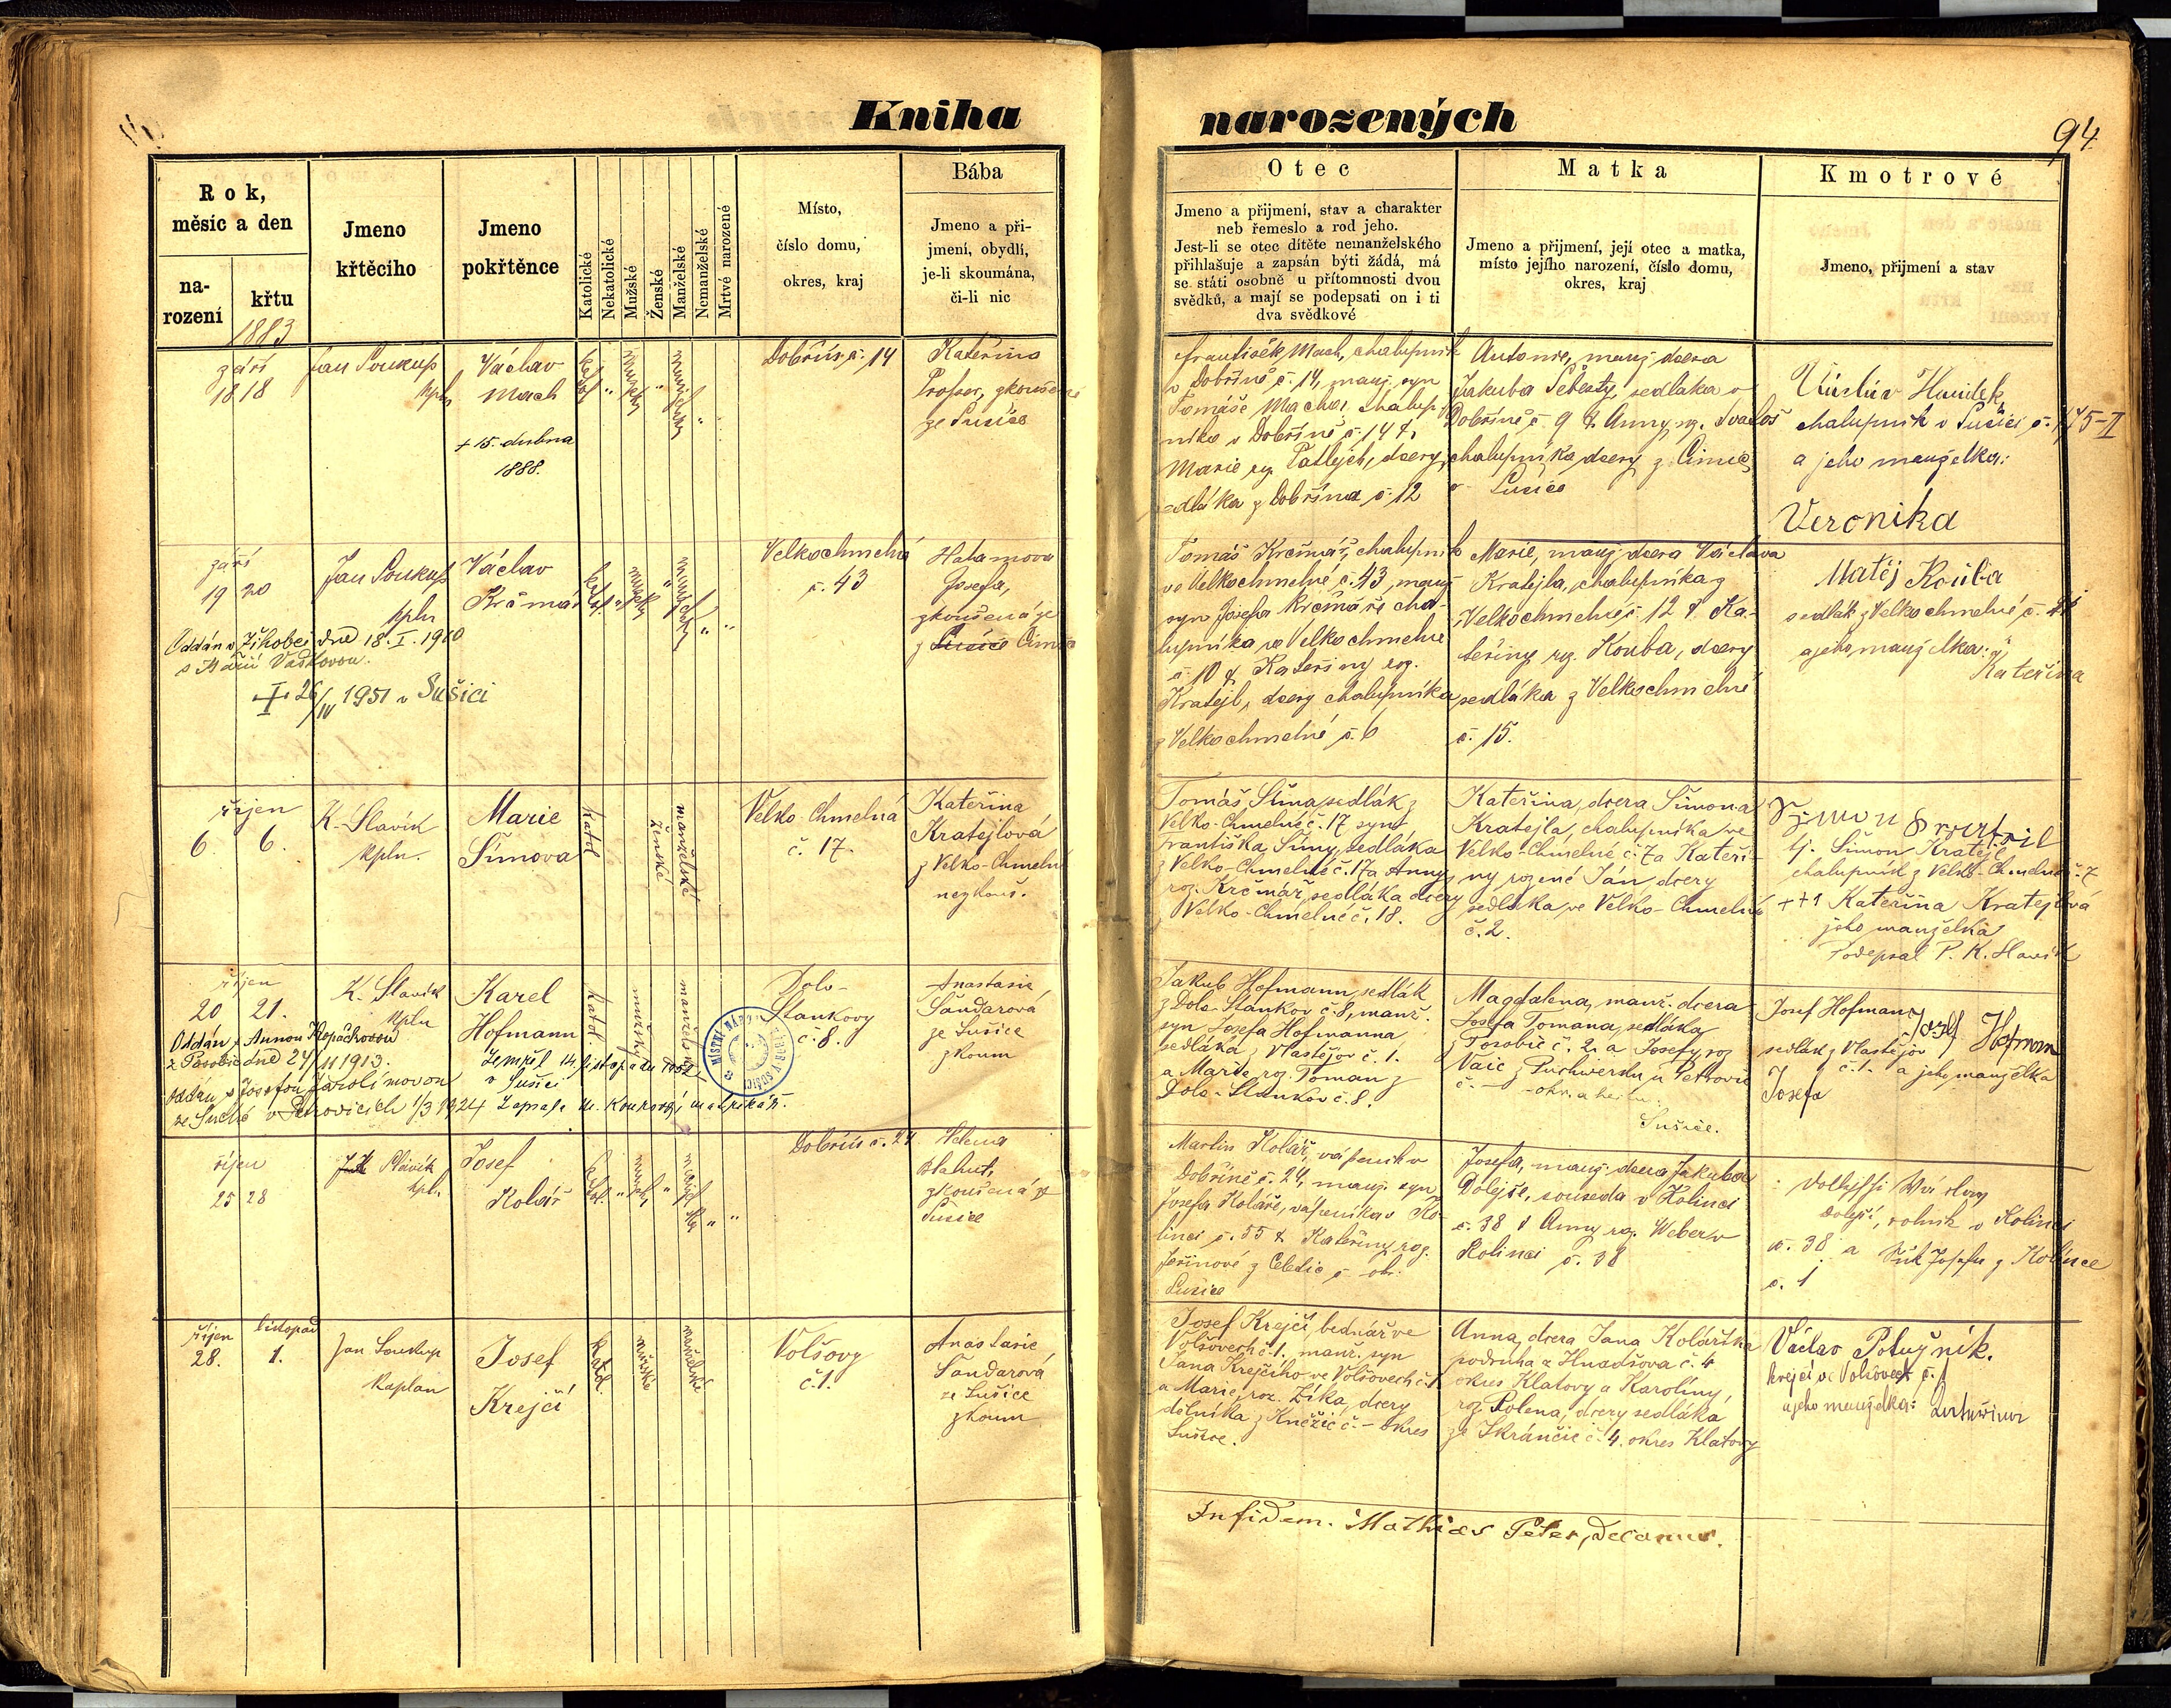 Kniha
narozených
94
Rok,
měsíc a den
na-
rození
křtu
1883
Jmeno
křtěcího
Jmeno
pokřtěnce
Katolické
Nekatolické
Mužské
Ženské
Manželské
Nemanželské
Mrtvé narozené
Místo,
číslo domu,
okres, kraj
Bába
Jmeno a při-
jmení, obydlí,
je-li skoumána,
či-li nic
Otec
Jmeno a přijmení, stav a charakter
neb řemeslo a rod jeho.
Jest-li se otec dítěte nemanželského
přihlašuje a zapsán býti žádá, má
se státi osobně u přítomnosti dvou
svědků, a mají se podepsati on i ti
dva svědkové
Matka
Jmeno a přijmení, její otec a matka,
místo jejího narození, číslo domu,
okres, kraj
Kmotrové
Jmeno, přijmení a stav
září
18 18
Jan Soukup
kpln
Václav
Mach
+ 15. dubna
1888.
Dobřín č. 14
Kateřina
zkoušená
ze Sušice
František Mach, chalupník
v Dobříně č. 14, manž. syn
Tomáše Macha, chalup
níka v Dobříně č. 14 &
Marie roz. Patlejch, dcery
sedláka z Dobřína č. 12
Antonie, manž. dcera
Jakuba Šebesty, sedláka v
Dobříně č. 9 & Anny, roz.
chalupníka dcery z Čimic
Sušice
Václav
chalupník v Sušici č. 145-II
a jeho manželka:
Veronika
září
19 20
Jan Soukup
kpln
Václav
Krčmář
Oddán v Žihobci dne 18. I. 1910
s Marií Vaškovou.
+ 26/IV 1951 v Sušici
Velkochmelná
č. 43
Josefa,
zkoušená ze
z Sušice Čimic
Tomáš Krčmář, chalupník
ve Velkochmelné č. 43, manž
syn Josefa Krčmáře cha-
lupníka ve Velkochmelné
č. 10 & Kateřiny roz.
Kratejl, dcery chalupníka
z Velkochmelné č. 6
Marie, manž. dcera Václava
Kratejla, chalupníka z
Velkochmelné č. 12 & Ka-
teřiny roz. Kouba, dcery
sedláka z Velkochmelné
č. 15.
Matěj Kouba
sedlák z Velkochmelné č.
a jeho manželka:
Kateřina
říjen
6. 6.
K. Slavík
kpln.
Marie
Šímova
katol
ženské
manželské
Velko-Chmelná
č. 17.
Kateřina
Kratejlová
z Velko-Chmelné
nezkouš.
Tomáš Šíma, sedlák z
Velko-Chmelné č. 17 syn
Františka Šímy, sedláka
z Velko-Chmelné č. 17 a Anny
roz. Krčmář, sedláka dcery
z Velko-Chmelné č. 18.
Kateřina, dcera Šimona
Kratejla, chalupníka ve
Velko-Chmelné č. 7 a Kateři-
ny rozené Ján, dcery
sedláka ve Velko-Chmelné
č. 2.
tj. Šimon Kratejl
chalupník z Velko-Chmelné č. 7
+++ Kateřina Kratejlová
jeho manželka
Podepsal P. K. Slavík
říjen
20 21.
K. Slavík
kpln
Karel
Hofmann
katol.
mužské
manželské
Oddán s Annou Kopáčkovou
dne 24/11 1913.
Oddán s Josefou Jarolímovou
ze Suché v Petrovicích 1/3 1924
Zemřel 14. listopadu 1952
v Sušici
Dolo-
Stankovy
č. 8.
Anastasie
Šandarová
ze Sušice
zkoum
Jakub Hofmann, sedlák
z Dolo-Stankov č. 8, manž.
syn Josefa Hofmanna
sedláka z Vlastějov č. 1.
a Marie roz. Toman z
Dolo-Stankov č. 8.
Magdalena, manž. dcera
Josefa Tomana, sedláka
č. 2. a Josefy roz
Vaic z u Petrovic
Sušice.
Josef Hofman
Josef Hofman
sedlák z Vlastějov
č. 1. a jeho manželka
Josefa
říjen
25 28
Slavík
kpln
Josef
Kolář
Dobřín č. 24
Helena
Blahut,
zkoušená ze
Sušice
Martin Kolář, vápeník v
Dobříně č. 24, manž. syn
Josefa Koláře, vápeníka v Ko-
linci č. 55 & Kateřiny roz.
z č. okr.
Sušice
Josefa, manž. dcera Jakuba
Dolejše, souseda v Kolinci
č. 38 & Anny roz. Weber v
Kolinci č. 38
Dolejší, rolník v Kolinci
č. 38 a z Kolince
č. 1
říjen listopad
28. 1.
Jan Soukup
kaplan
Josef
Krejčí
katol.
mužské
manželské
Volšovy
č. 1.
Anastasie
Šandarová
ze Sušice
zkoum
Josef Krejčí, bednář ve
Volšovech č. 1. manž. syn
Jana Krejčího ve Volšovech č. 1
a Marie, roz. Zíka, dcery
dělníka z Kněžic č. – okres
Sušice.
Anna, dcera Jana Kolářika
podruha z Hnačova č. 4
okres Klatovy a Karolíny,
roz. Polena, dcery sedláka
ze Skránčic č. 4. okres Klatovy
Václav Potužník.
krejčí ve Volšovech č. 1
a jeho manželka:
In fidem. Mathias Peter, Decanus.